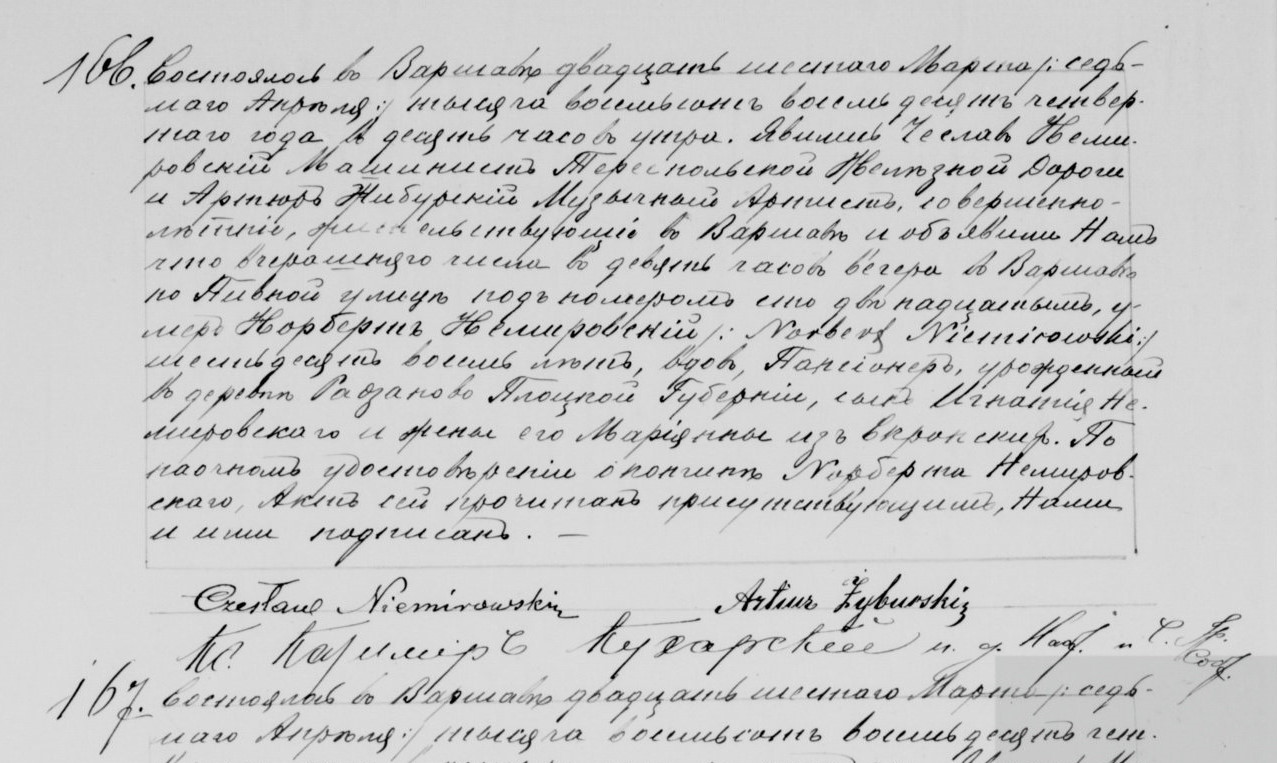 166. Состоялось въ Варшавѣ двадцать шестаго Марта /: седь-
маго Апрѣля :/ тысяча восемьсотъ восемьдесятъ четвер-
таго года въ десять часовъ утра. Явились Чеславъ Неми-
ровскій Машинистъ Тереспольской Желѣзной Дороги
и Артюръ Жибурскій Музычный Артистъ, совершенно-
лѣтніе, жительствующіе въ Варшавѣ и объявили Намъ
что вчерашняго числа въ девять часовъ вечера въ Варшавѣ
по Пивной улицѣ подъ номеромъ сто двѣнадцатымъ, у-
меръ Норбертъ Немировскій /: Norbert Niemirowski :/
шестьдесятъ восемь лѣтъ, вдовъ, Пансіонеръ, урожденный
въ деревнѣ Радзаново Плоцкой Губерніи, сынъ Игнатія Не-
мировскаго и жены его Маріянны изъ Вкронскихъ. По
наочномъ удостовѣреніи о кончинѣ Норберта Немиров-
скаго, Актъ сей прочитанъ присутствующимъ, Нами
и ими подписанъ. —
Czesław Niemirowski Artiur Zyburski
Кс. Казимиръ Кухарскій и. д. Наст. и Ч. Гр. Сост.
167. Состоялось въ Варшавѣ двадцать шестаго Марта /: седь-
маго Апрѣля :/ тысяча восемьсотъ восемьдесятъ чет-